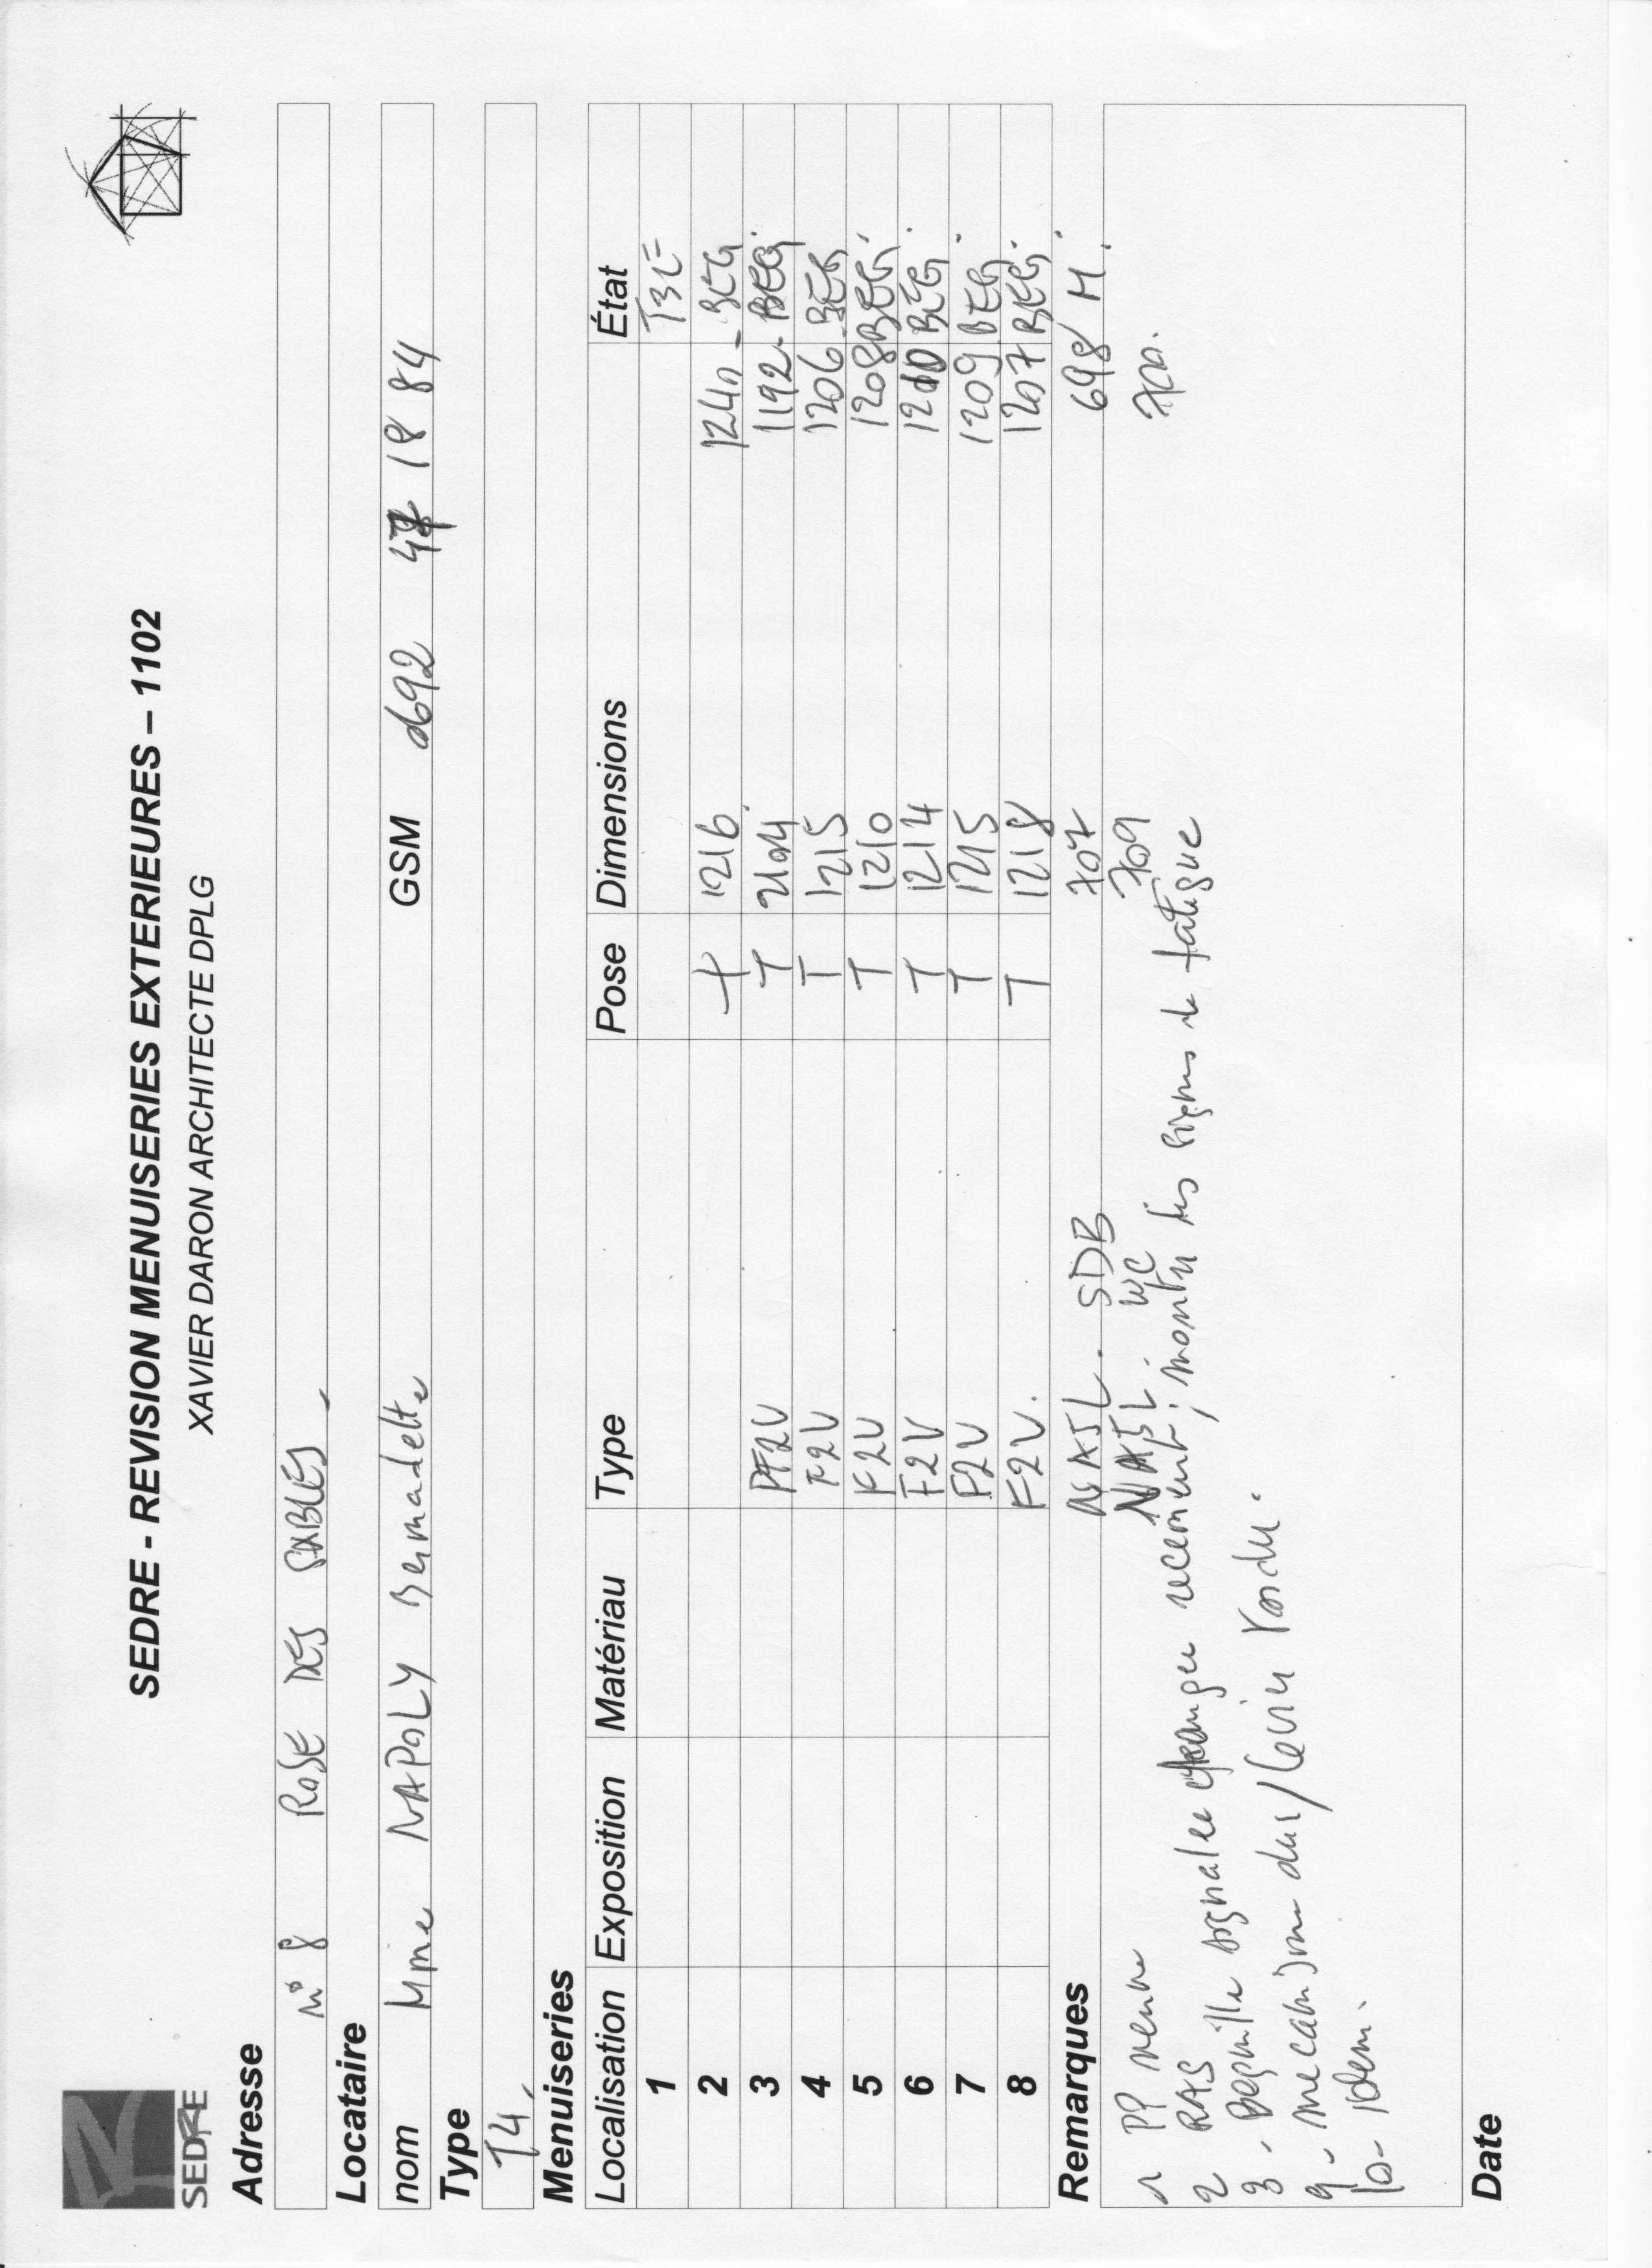 SEDRE
SEDRE - REVISION MENUISERIES EXTERIEURES – 1102
XAVIER DARON ARCHITECTE DPLG
Adresse
N° 8 ROSE DES SABLES
Locataire
nom Mme NAPOLY Bernadette GSM 0692 47 18 84
Type
T4.
Menuiseries
Localisation Exposition Matériau Type Pose Dimensions État
1 TBE
2 T 1216 1240 - BEG.
3 PF2V T 1192 - BEG.
4 F2V T 1215 1206 - BEG.
5 F2V T 1210 1208 BEG.
6 F2V T 1214 BEG.
7 F2V T 1215 1209 BEG.
8 F2V. T 1218 1207 BEG.
NAJL. SDB 707 698 / M.
Remarques
NAJL. WC 709
1 PP neuve
2 RAS
3. Bequille signalee changer recement; montre des signes de fatigue
9 - mecanisme dur / levier tordu.
10 - idem.
Date